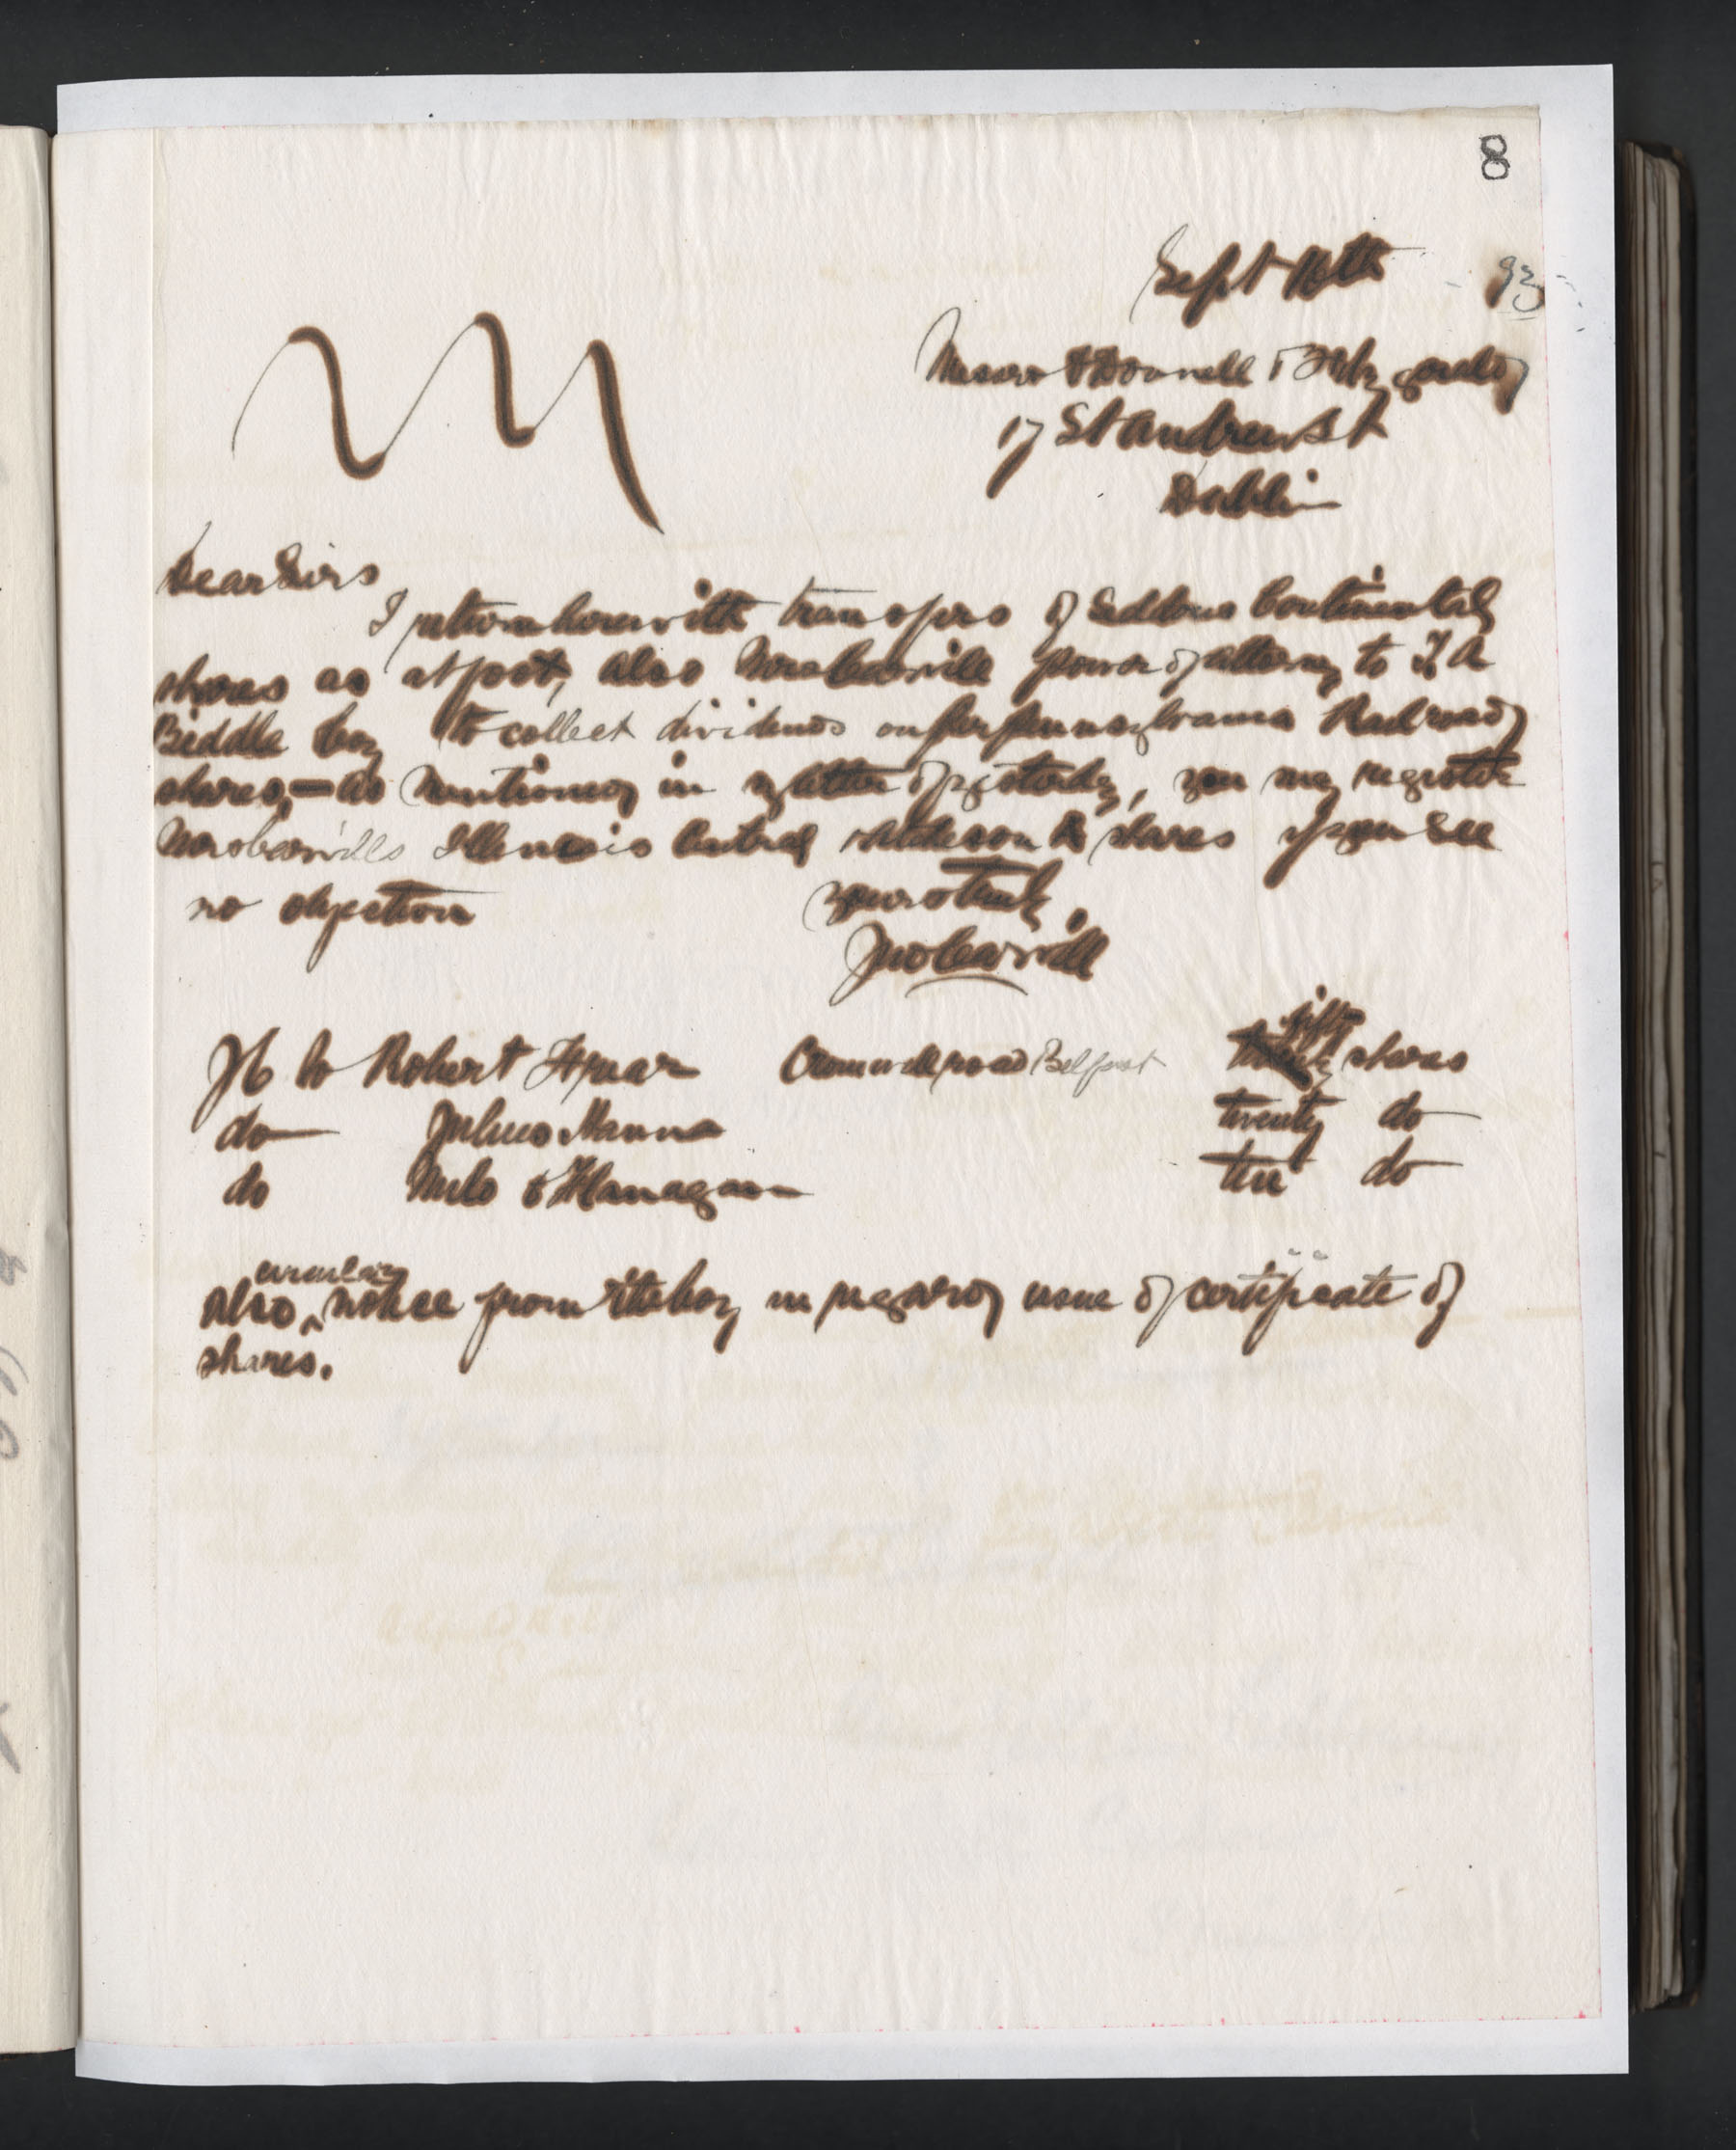 8
Sept 16th 93
Messrs O'Donnell & Fitzgerald
17 St Andrew St
Dublin
Dear Sirs
I return herewith transfers of Seddons Continental
shares as at foot, also Mrs Carvill power of attorney to T A
Biddle Coy to collect dividends on her Pennsylvania Railroad
shares, — as mentioned in my letter of yesterday, you may register
Mrs Carvills Illinois Central & shares if you see
no objection
yours truly
Jno Carvill
JC to Robert Spear Cromwell road Belfast fifty shares
do Julius Hanna twenty do
do Milo O'Flanagan ten do
circular
Also notice from the Coy in regard issue of certificate of
shares.